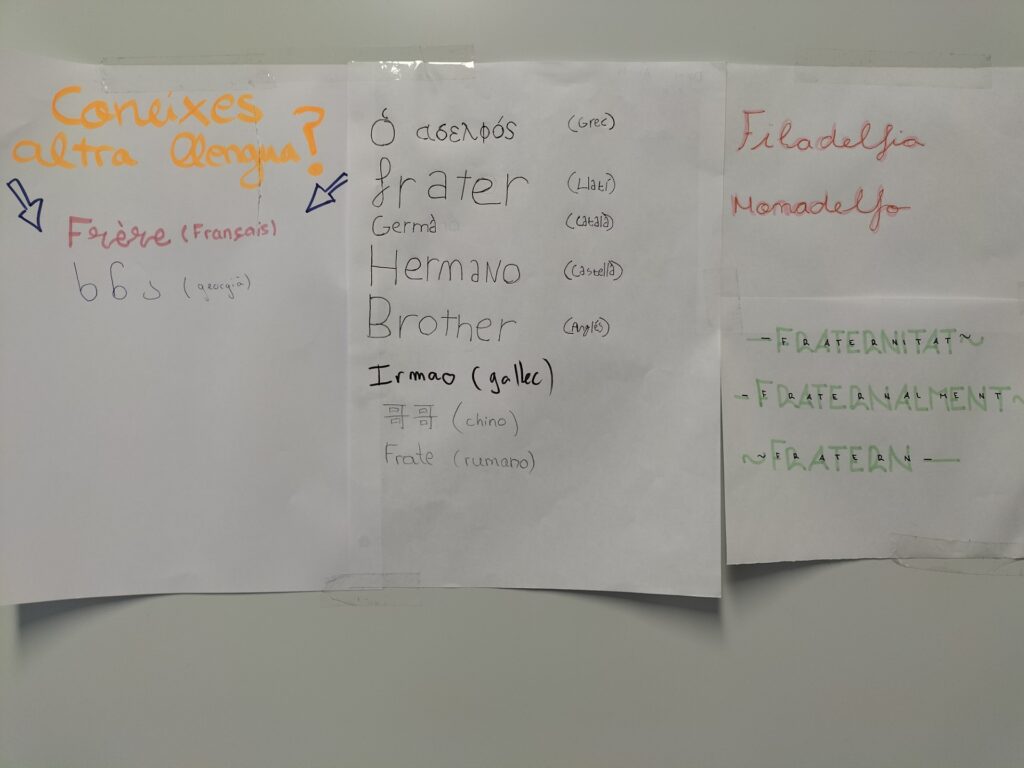 Coneixes
altra llengua?
Frère (Français)
ძმა (georgià)
Ὁ ασελφός (Grec)
frater (Llatí)
Germà (Català)
Hermano (Castellà)
Brother (Anglès)
Irmao (gallec)
哥哥 (chino)
Frate (rumano)
Filadelfia
Monadelfo
-FRATERNITAT~
-FRATERNALMENT~
~FRATERN-